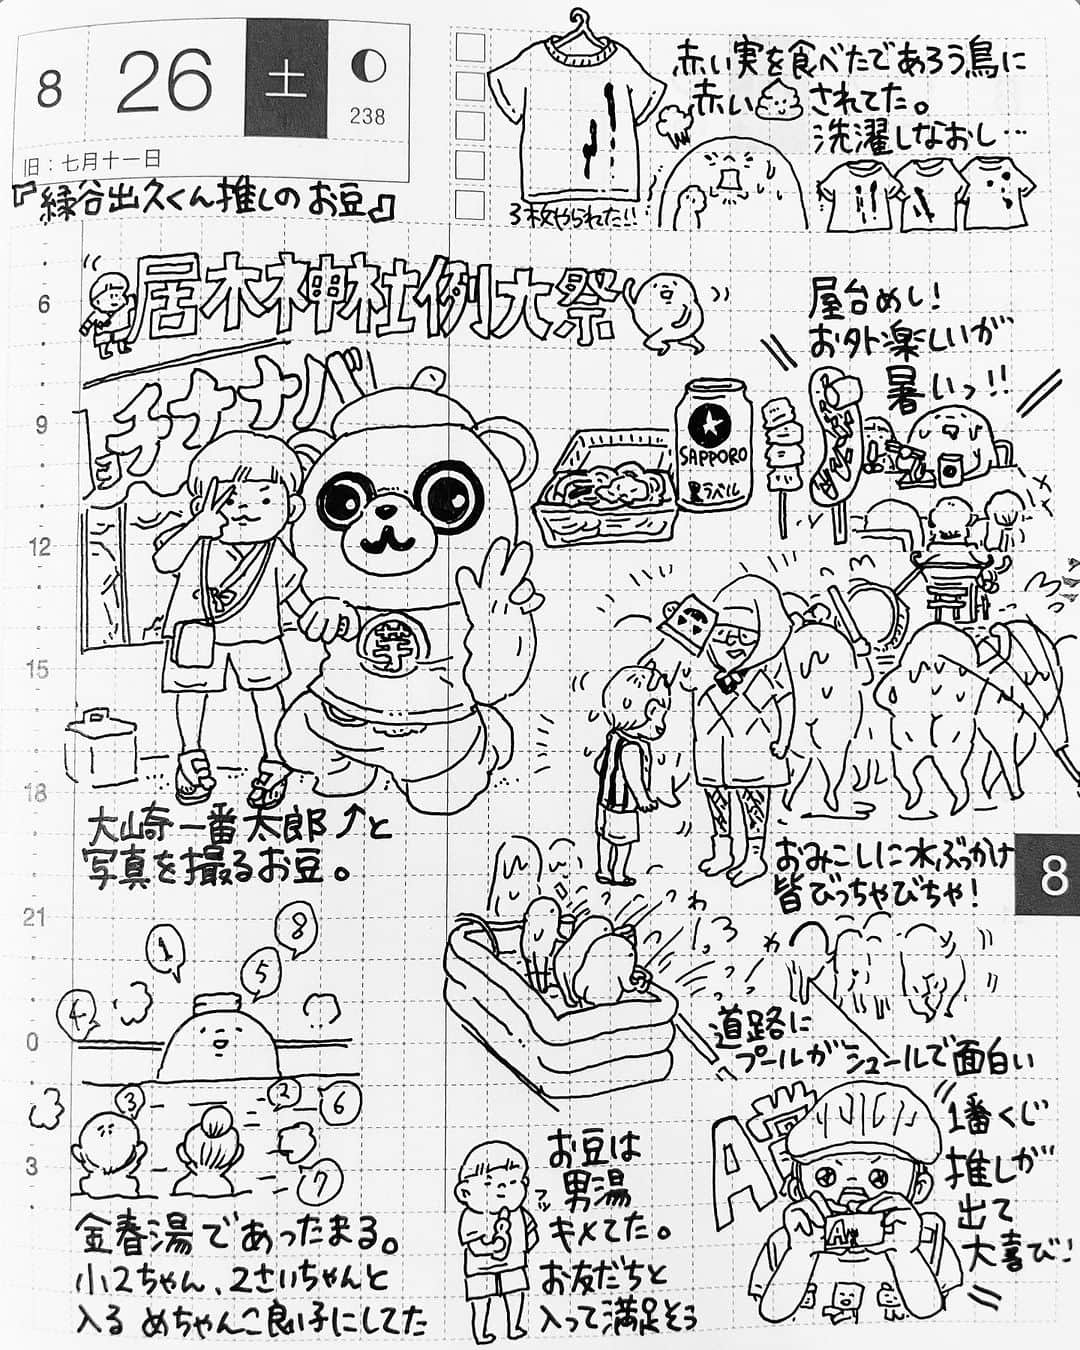 8
26
土
238
旧：七月十一日
『緑谷出久くん推しのお豆』
赤い実を食べたであろう鳥に
赤い💩されてた。
洗濯しなおし…
3枚やられた!!
居木神社例大祭
屋台めし！
お外楽しいが
暑いっ!!
チョコバナナ
SAPPORO
黒ラベル
大崎一番太郎↑と
写真を撮るお豆。
おみこしに水ぶっかけ
皆びっちゃびちゃ！
道路に
プールがシュールで面白い
金春湯であったまる。
小2ちゃん、2さいちゃんと
入る めちゃんこ良い子にしてた
お豆は
男湯
キメてた。
お友だちと
入って満足そう
A賞
A
1番くじ
推しが
出て
大喜び！
6
9
12
15
18
21
0
3
8
1
2
3
4
5
6
7
8